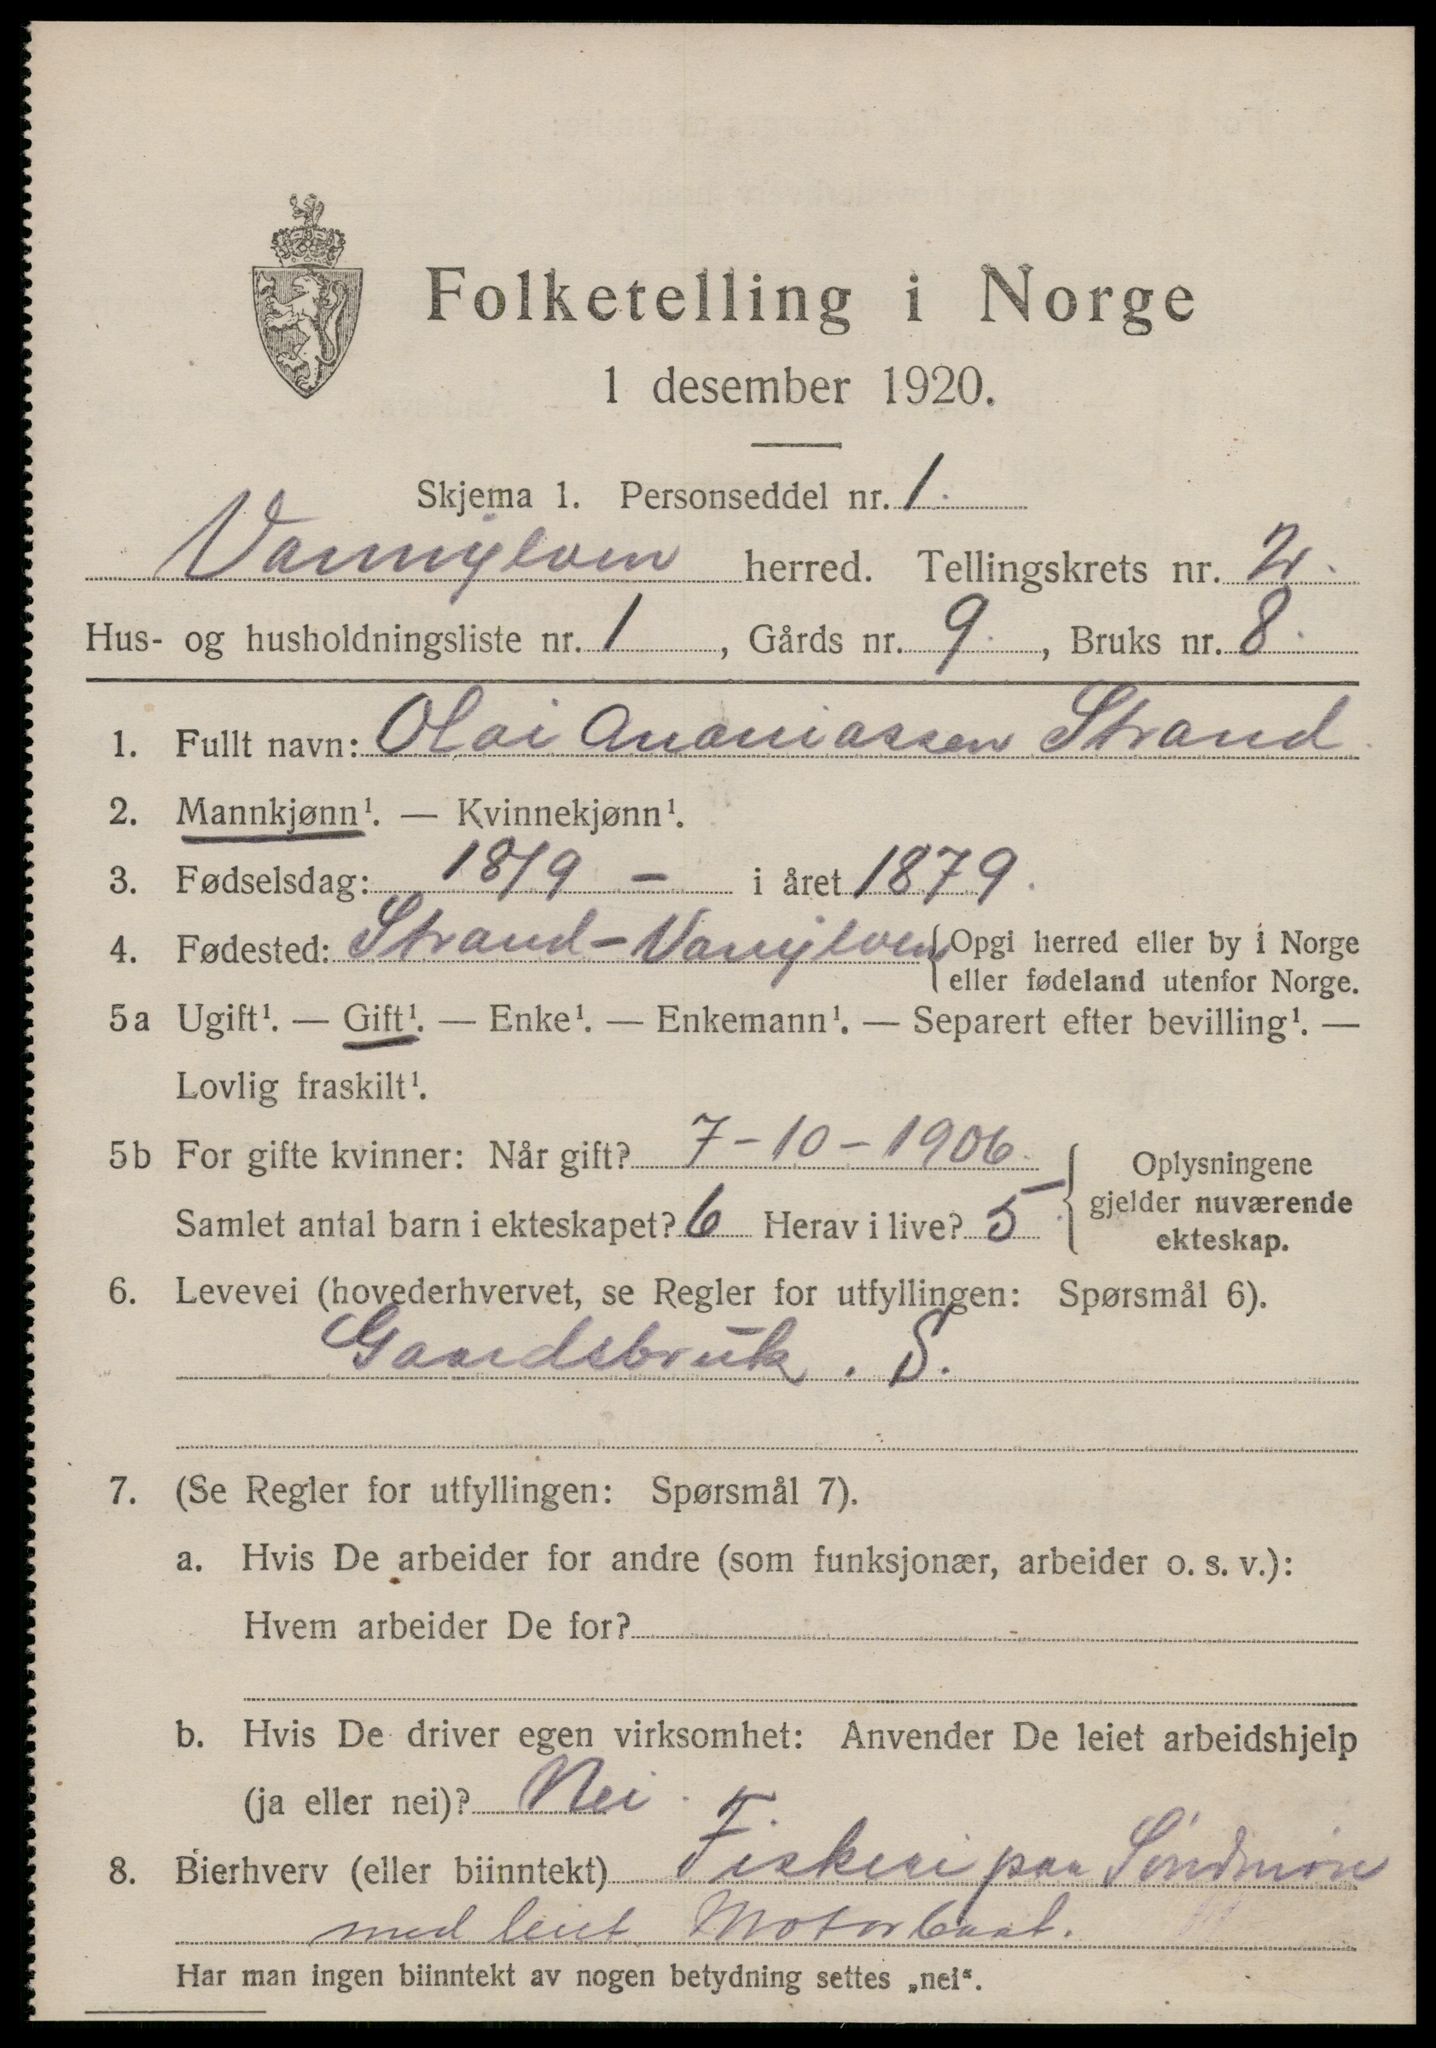 Folketelling i Norge
1 desember 1920.
Skjema 1. Personseddel nr. 1.
Vannylven herred. Tellingskrets nr. 2.
Hus- og husholdningsliste nr. 1, Gårds nr. 9., Bruks nr. 8.
1. Fullt navn: Olai Ananiassen Strand.
2. Mannkjønn¹. — Kvinnekjønn¹.
3. Fødselsdag: 18/9 – i året 1879.
4. Fødested: Strand – Vanylven { Opgi herred eller by i Norge
eller fødeland utenfor Norge.
5a Ugift¹. — Gift¹. — Enke¹. — Enkemann¹. — Separert efter bevilling¹. —
Lovlig fraskilt¹.
5b For gifte kvinner: Når gift? 7-10-1906.
Samlet antal barn i ekteskapet? 6 Herav i live? 5
{ Oplysningene
gjelder nuværende
ekteskap.
6. Levevei (hovederhvervet, se Regler for utfyllingen: Spørsmål 6).
Gaardsbruk. S.
7. (Se Regler for utfyllingen: Spørsmål 7).
a. Hvis De arbeider for andre (som funksjonær, arbeider o. s. v.):
Hvem arbeider De for?
b. Hvis De driver egen virksomhet: Anvender De leiet arbeidshjelp
(ja eller nei)? Nei.
8. Bierhverv (eller biinntekt) Fiskeri paa Söndmöre
med leiet Motorbaat.
Har man ingen biinntekt av nogen betydning settes „nei“.